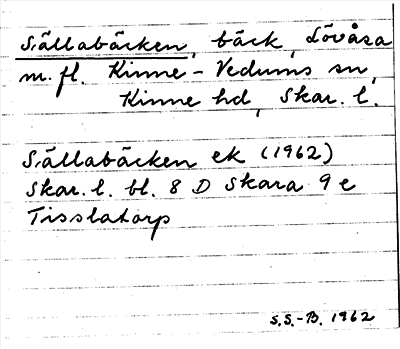 Sällabäcken, bäck, Lövåsa
m.fl. Kinne-Vedums sn,
Kinne hd, Skar. l.
Sällabäcken ek (1962)
Skar. l. bl. 8 D Skara 9 e
Tisslatorp
S.S.-B. 1962